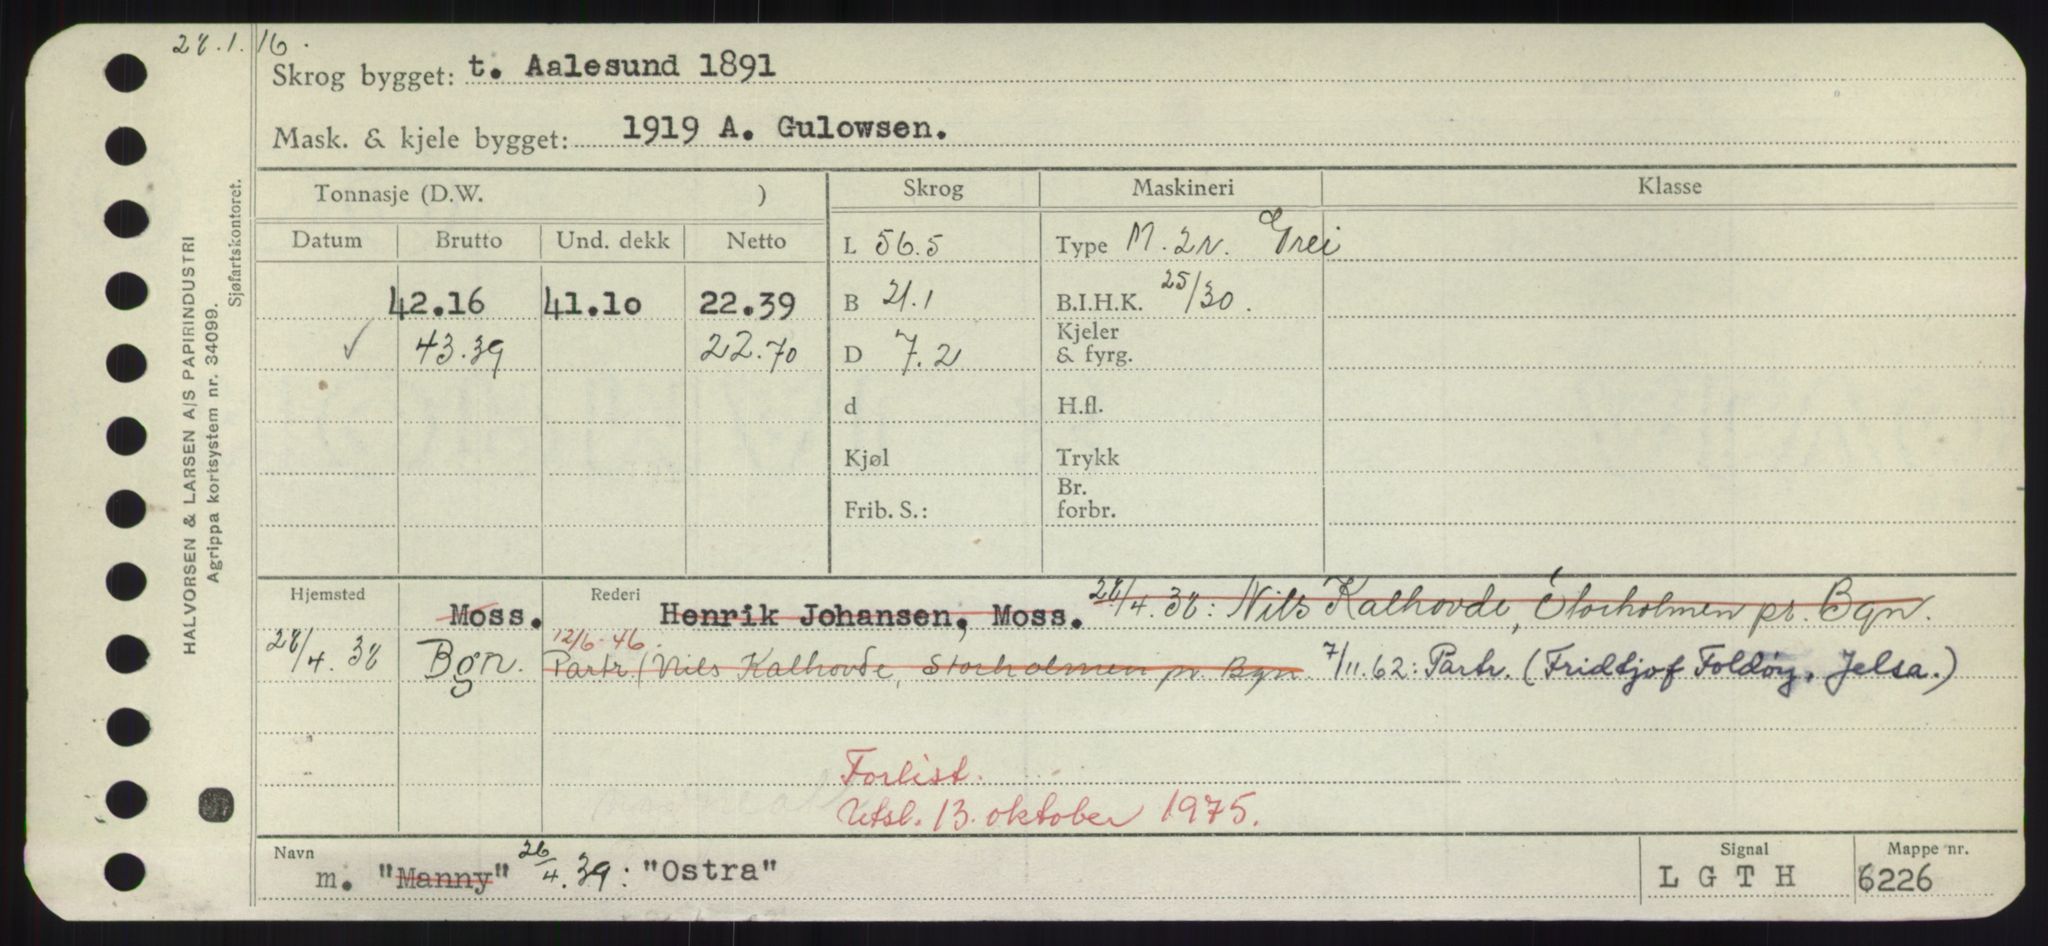 28.1.16.
Skrog bygget: t. Aalesund 1891
Mask. & kjele bygget: 1919 A. Gulowsen.
Tonnasje (D.W. ) Skrog Maskineri Klasse
Datum Brutto Und. dekk Netto L 56.5 Type M. 2 v. Grei
42.16 41.10 22.39 B 21.1 B.I.H.K. 25/30.
✓ 43.39 22.70 D 7.2 Kjeler & fyrg.
d H.fl.
Kjøl Trykk
Frib. S.: Br. forbr.
Hjemsted Moss. Rederi Henrik Johansen, Moss. 28/4.38: Nils Kalhovde, Storholmen pr. Bgn.
28/4.38 Bgn. 12/6-46. Partr. (Nils Kalhovde, Storholmen pr Bgn. 7/11.62: Partr. (Fridtjof Foldøy, Jelsa.)
Forlist.
Utsl. 13. oktober 1975.
Navn Signal Mappe nr.
m. "Manny" 26/4.39: "Ostra" L G T H 6226
HALVORSEN & LARSEN A/S PAPIRINDUSTRI
Agrippa kortsystem nr. 34099.
Sjøfartskontoret.